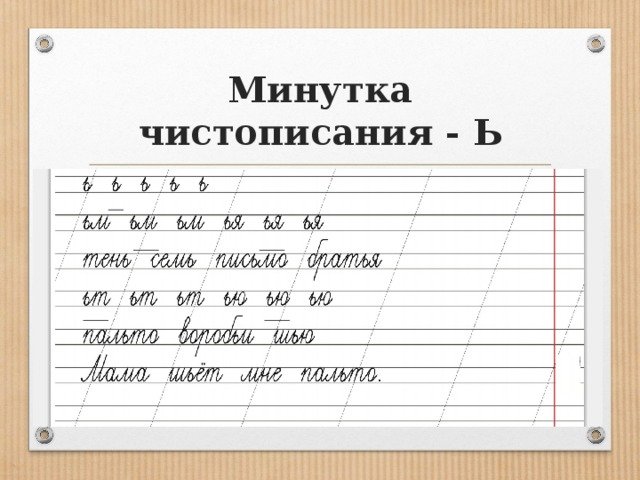 Минутка
чистописания - Ь
ь ь ь ь ь
ьм ьм ьм ья ья ья
тень семь письмо братья
ьт ьт ьт ью ью ью
пальто воробьи шью
Мама шьёт мне пальто.